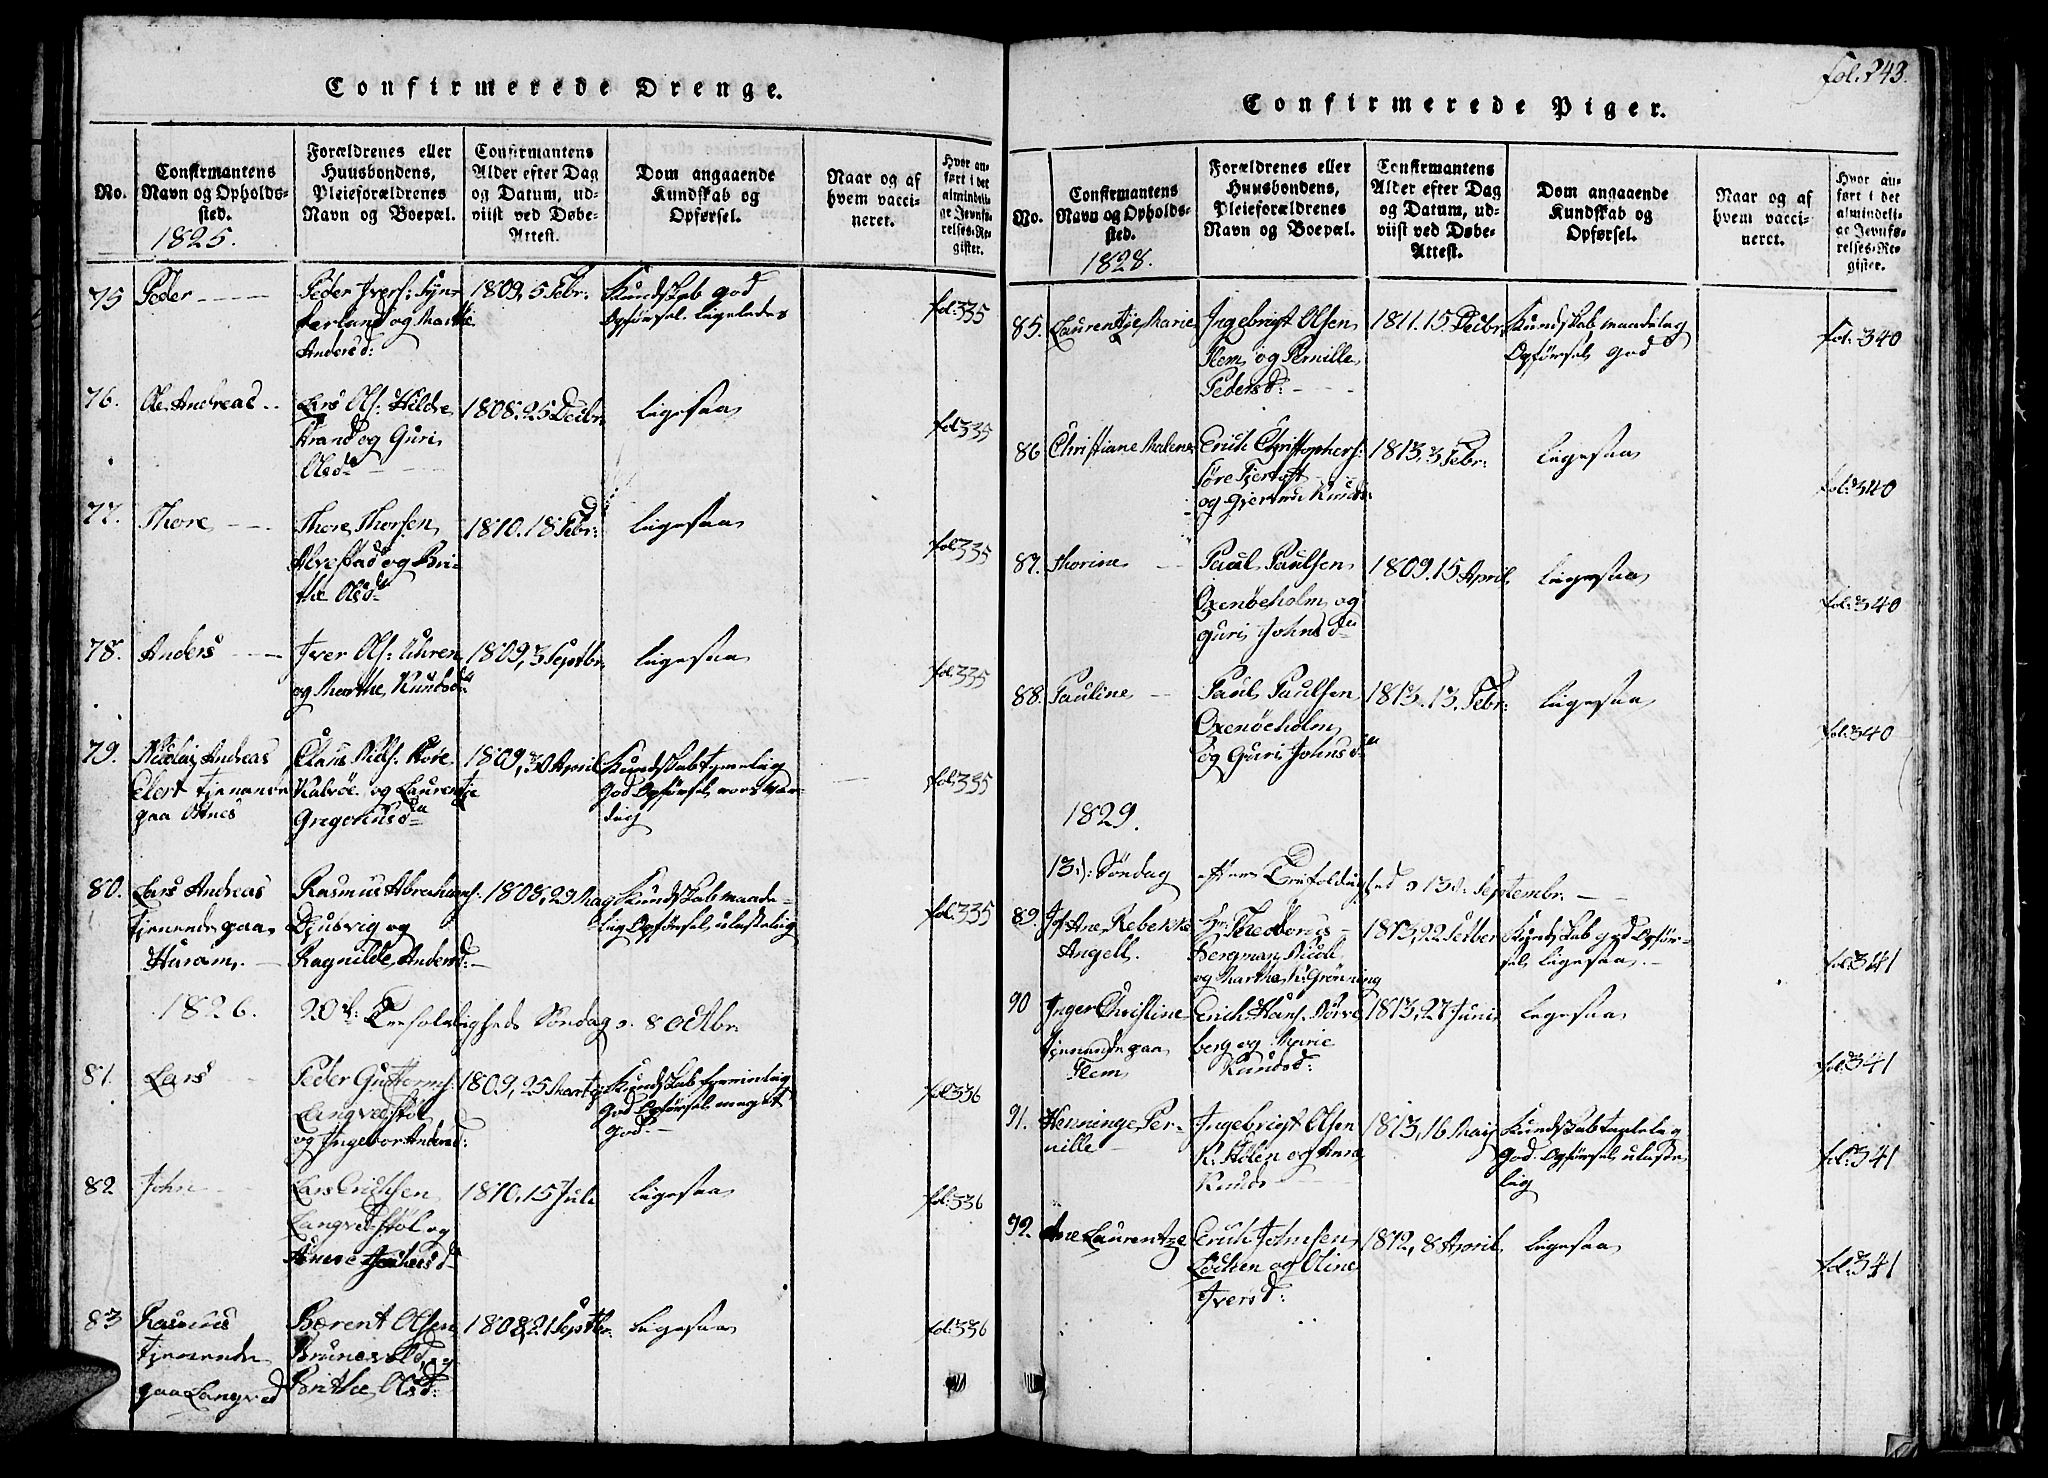 Confirmerede Drenge.
No.
Confirmantens Navn og Opholdssted.
Forældrenes eller Huusbondens, Pleieforældrenes Navn og Boepæl.
Confirmantens Alder efter Dag og Datum, udviist ved Døbe-Attest.
Dom angaaende Kundskab og Opførsel.
Naar og af hvem vaccineret.
Hvor anført i det almindelige Jevnførelses-Register.
1825.
75 Peder
Peder Ivers:
og Marthe
Andersd:
1809, 5 Febr:
Kundskab god
Opførsel ligeledes
fol: 335
76. Ole Andreas
Lars Ols: Hildre
strand og Guri
Olsd
1808. 25 Decbr.
ligesaa
fol 335
77. Thore
Thore Thorsen
Alvestad og Bri-
the Olsd
1810. 18 Febr:
ligesaa
fol 335
78. Anders
Iver Ols: Uhren
og Marthe Knudsd
1809, 3 Septbr.
ligesaa
fol 335
79. Nicolaj Andreas
Elert tjenende
paa Otnes
Claus Niels:
Kalvøe og Laurentze
Gregoriusd
1809, 30 April
Kundskab temmelig
god Opførsel
dig
fol 335
80. Lars Andreas
tjenende paa
Huram
Rasmus Abrahams:
Djubvig og
Ragnilde Andersd:
1808, 29 May
Kundskab maade-
lig Opførsel ulastelig
fol 335
1826. 20de: Trefoldigheds Søndag d. 8 Octbr.
81. Lars
Peder Gutterms:
Langvedstøl
og Ingebor Andersd:
1809, 25 Martz
Kundskab temmelig
god Opførsel meget
god
fol 336
82 John
Lars Erichsen
Langvedstøl og
Anne
1810. 15 Juli
ligesaa
fol: 336
83 Rasmus
tjenende
paa Langved
Bærent Olsen
Brunevold, og
Brithe Olsd:
1808, 21 Septbr.
ligesaa
fol: 336
fol. 243.
Confirmerede Piger.
No.
Confirmantens Navn og Opholdssted.
Forældrenes eller Huusbondens, Pleieforældrenes Navn og Boepæl.
Confirmantens Alder efter Dag og Datum, udviist ved Døbe-Attest.
Dom angaaende Kundskab og Opførsel.
Naar og af hvem vaccineret.
Hvor anført i det almindelige Jevnførelses-Register.
1828.
85. Laurentze Marie
Ingebrigt Olsen
Flem og Pernille
Pedersd:
1811. 15. Decbr.
Kundskab maadelig
Opførsel god
fol: 340
86 Christiane Malene
Erich Christophers:
Søre Fjertoft
og Gjertru Knuds
1813, 3 Febr:
ligesaa
fol: 340
87. Thorine
Paul Paulsen
Oxenøeholm og
Guri Johnsd
1809. 15 April
ligesaa
fol: 340
88. Pauline
Paul Paulsen
Oxenøeholm
og Guri Johnsd
1813. 13. Febr:
ligesaa
fol: 340
1829.
13: Søndag efter Trefoldighed d 13de Septembr.
89. Ane Rebekke
Angell.
Hr: Theodorus
Bergman Nicol
og Martha H: Grønning
1813, 22 Octber
Kundskab god Opfør-
sel ligesaa
fol: 341
90 Inger Christine
tjenende paa
Flem
Erich Hans:
berg og Marie
Knudsd:
1813, 27 Juni
ligesaa
fol: 341
91. Henninge Per-
nille
Ingebrigt Olsen
og Anne
Knuds
1813, 16 Maij
Kundskab taalelig
god. Opførsel ulaste
lig
fol: 341
92. Ane Laurentze
Erich Johnsen
Løchen og Oline
Iversd:
1812, 8 April
ligesaa
fol: 341